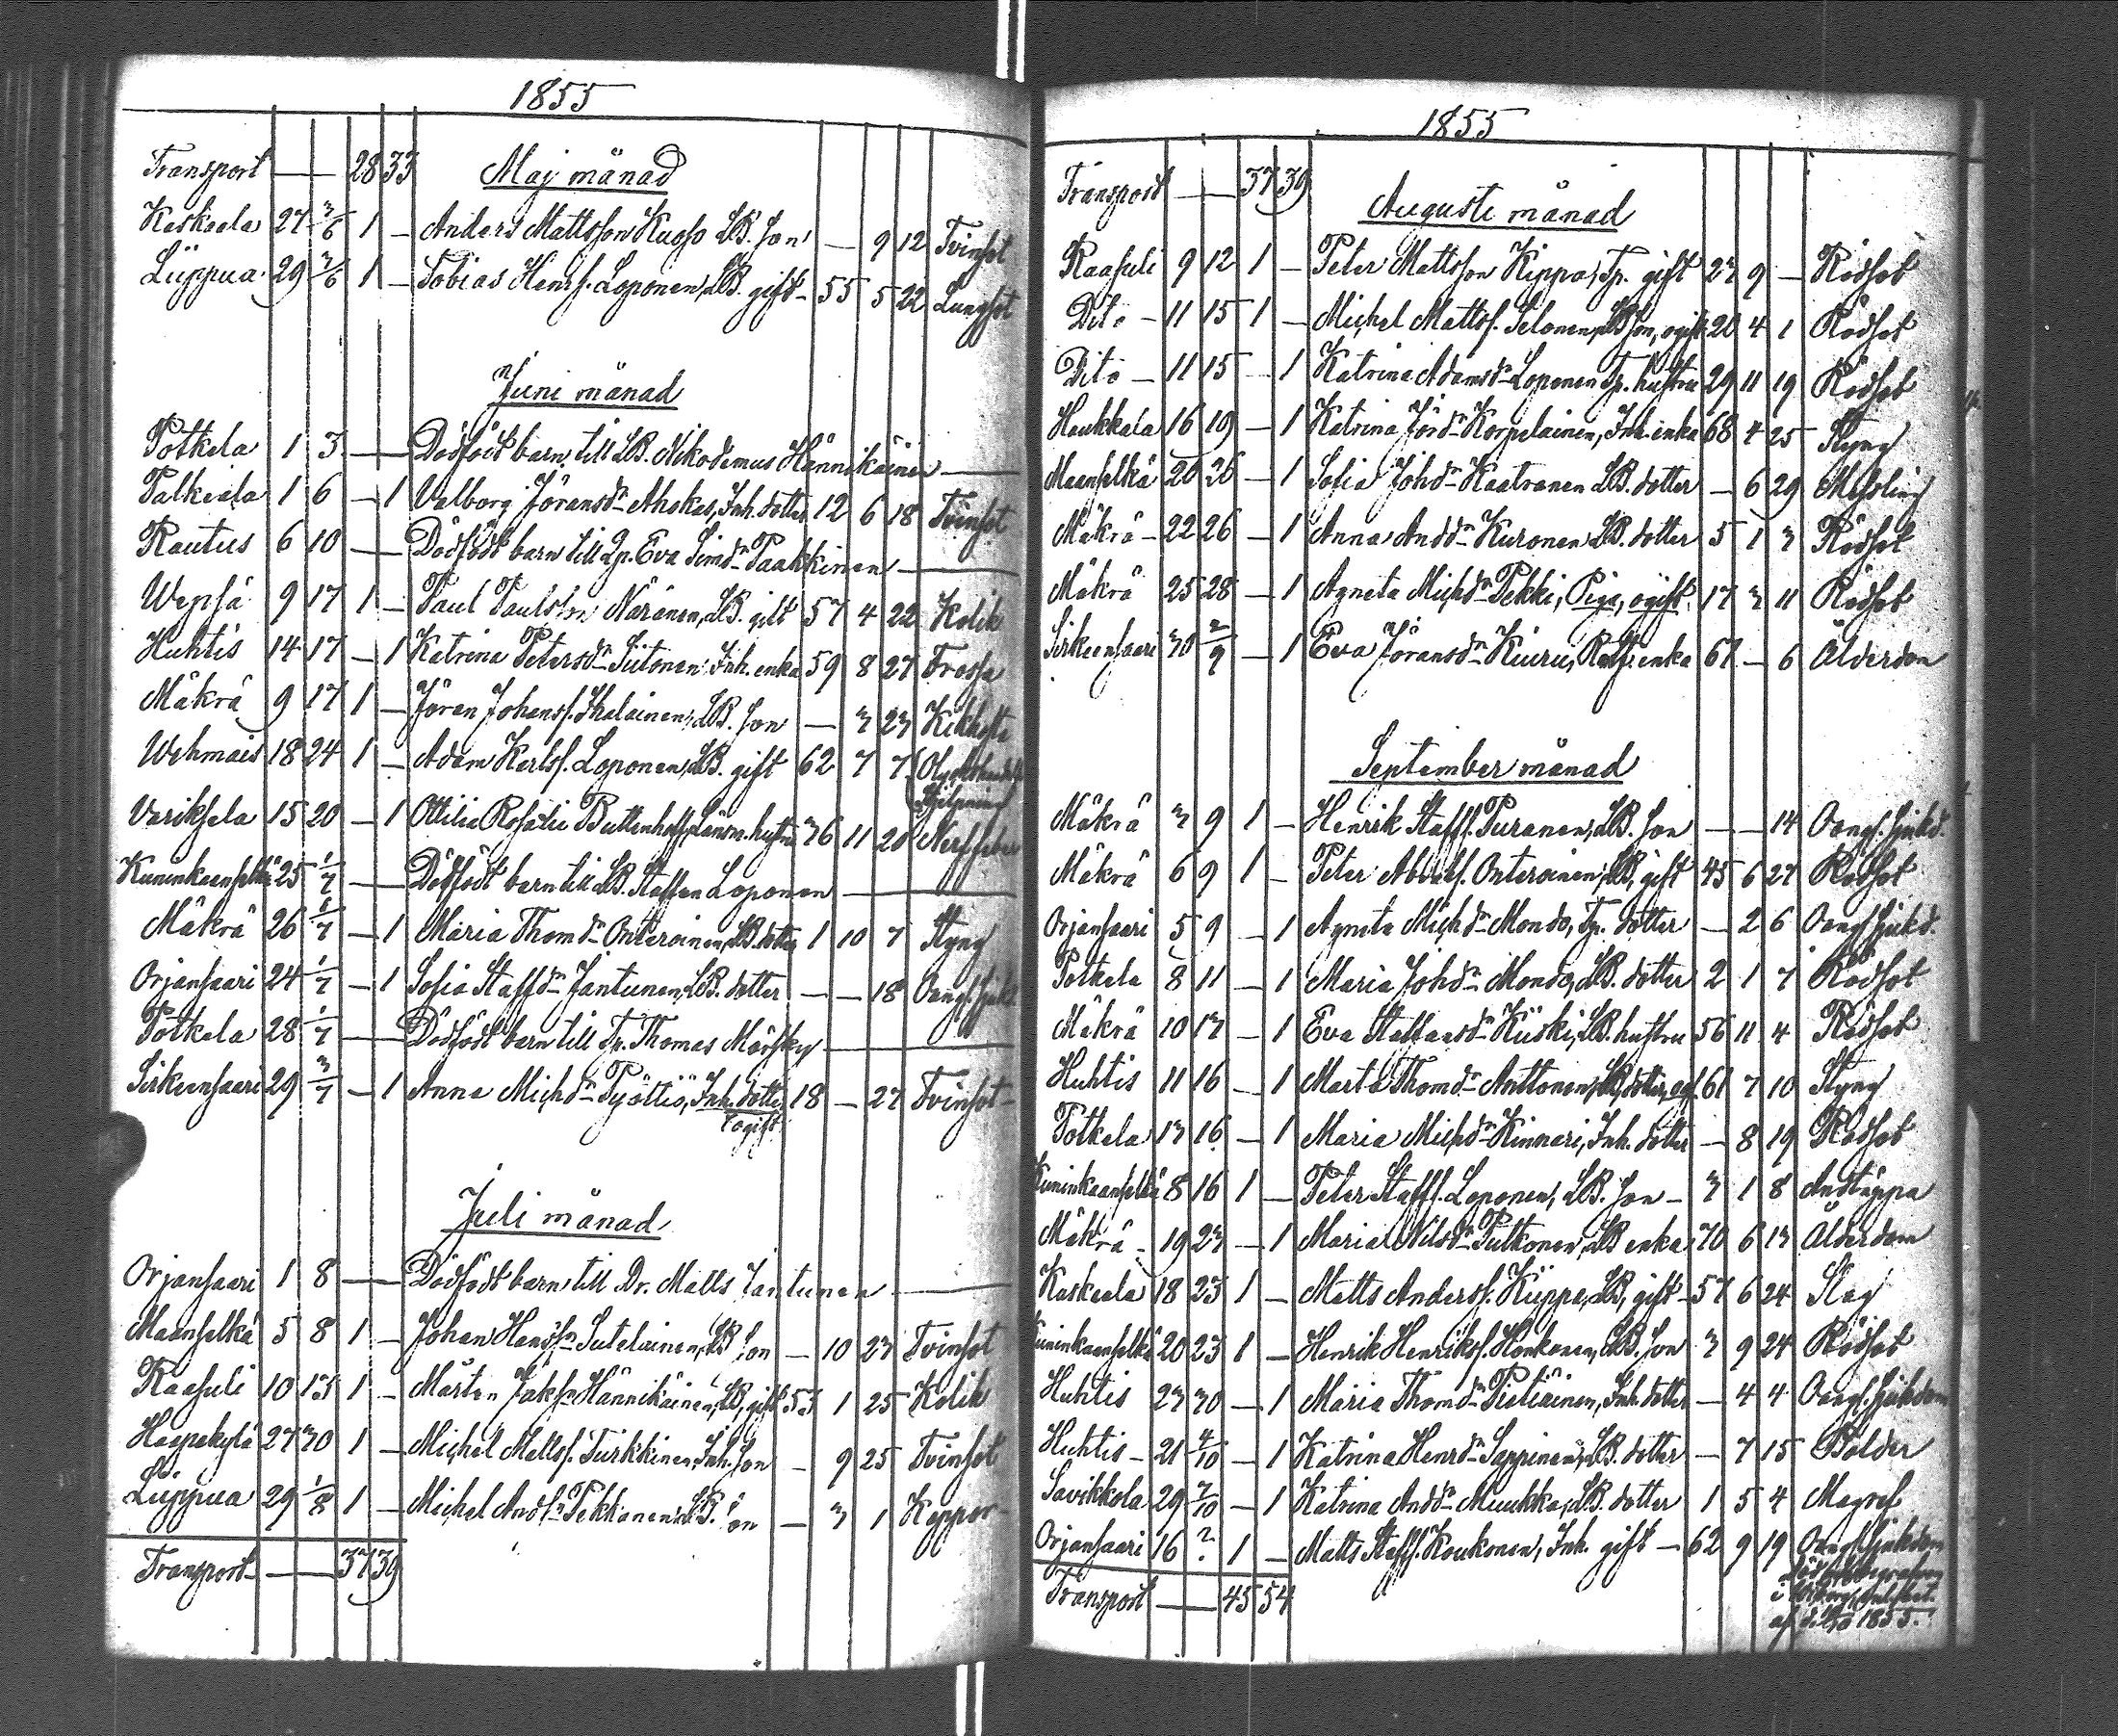 1855
Transport — — 28 33 Maj månad
Kaskaala 27 3/6 1 — Anders Mattsson Kuoso LB. son — 9 12 Tvinsot
Lüppua 29 3/6 1 — Tobias Henrs. Loponen, LB. gift — 55 5 22 Lungsot
Juni månad
Potkela 1 3 — — Dödfödt barn till LB. Nikodemus Hännikäinen —
Palkeala 1 6 — 1 Valborg Jöransdr Ahokas, Inh. dotter 12 6 18 Tvinsot
Rautus 6 10 — — Dödfödt barn till Qp. Eva Simdr Paakkinen —
Wepsä 9 17 1 — Paul Paulsson Näränen, LB. gift 57 4 22 Kolik
Huhtis 14 17 — 1 Katrina Petersdr Siitonen, Inh. enka 59 8 27 Frossa
Mäkrä 9 17 1 — Jöran Johanss. Ihalainen, LB. son — 3 23 Kikhosta
Wehmais 18 24 1 — Adam Karlss. Loponen, LB. gift 62 7 7 Olyckshändelse
Variksela 15 20 — 1 Ottilia Rosalie Buttenhoff, Länsm. hustru 36 11 20 Nerffeber
Kuninkaanselkä 25 1/7 — — Dödfödt barn till LB. Staffan Loponen —
Mäkrä 26 1/7 — 1 Maria Thomdr Onteroinen, LB. dotter 1 10 7 Styng
Orjansaari 24 1/7 — 1 Sofia Staffdr Jantunen, LB. dotter — — 18 Oang. sjukd.
Potkela 28 1/7 — — Dödfödt barn till Tp. Thomas Märsky —
Sirkeensaari 29 3/7 — 1 Anna Michdr Pyöttiö, Inh. dotter 18 — 27 Tvinsot
ogift
Juli månad
Orjansaari 1 8 — — Dödfödt barn till Dr. Matts Jantunen —
Maanselkä 5 8 1 — Johan Hansson Sutelainen, LB. son — 10 23 Tvinsot
Raasuli 10 15 1 — Mårten Jaksn Hännikäinen, LB. gift 53 1 25 Kolik
Haapakylä 27 30 1 — Michel Mattss. Turkkinen, Inh. son — 9 25 Tvinsot
Lüppua 29 1/8 1 — Michel Andsn Pekkanen, LB. son — 3 1 Koppor
Transport — — 37 39
1855
Transport — — 37 39
Augusti månad
Raasuli 9 12 1 — Peter Mattsson Kippa, Tp. gift 23 9 — Rödsot
Dito — 11 15 1 — Michel Mattss. Ilonen, LB. son, ogift 20 4 1 Rödsot
Dito — 11 15 — 1 Katrina Adamsdr Loponen Tp. hustru 29 11 19 Rödsot
Haukkala 16 19 — 1 Katrina Jördr Korpelainen, Inh. enka 68 4 25 Styng
Maanselkä 20 26 — 1 Sofia Johdr Kaatranen LB. dotter — 6 29 Messling
Mäkrä — 22 26 — 1 Anna Anddr Kuronen LB. dotter 5 1 3 Rödsot
Mäkrä 25 28 — 1 Agneta Michdr Pekki, Piga, ogift 17 3 11 Rödsot
Sirkeensaari 30 2/9 — 1 Eva Jöransdr Kiuru, enka 67 — 6 Ålderdom
September månad
Mäkrä 3 9 1 — Henrik Staffs. Puranen, LB. son — — 14 Oang. sjukd.
Mäkrä 6 9 1 — Peter Abrahs. Onteroinen, LB. gift 45 6 27 Rödsot
Orjansaari 5 9 — 1 Agneta Michdr Mondo, Tp. dotter — 2 6 Oang. sjukd.
Potkela 8 11 — 1 Maria Johdr Mondo, LB. dotter 2 1 7 Rödsot
Mäkrä 10 13 — 1 Eva Staffansdr Kiiski, LB. hustru 56 11 4 Rödsot
Huhtis 11 16 — 1 Marta Thomdr Anttonen, LB. dotter, og. 61 7 10 Styng
Potkela 13 16 — 1 Maria Michdr Kinnari, Inh. dotter — 8 19 Rödsot
Kuninkaanselkä 8 16 1 — Peter Staffs. Loponen, LB. son — 3 1 8 Andtäppa
Mäkrä — 19 23 — 1 Maria Nilsdr Putkonen, LB. enka 70 6 13 Ålderdom
Kaskaala 18 23 1 — Matts Anderss. Kiippa, LB. gift — 57 6 24 Slag
Kuninkaanselkä 20 23 1 — Henrik Henrikss. Honkanen, LB. son 3 9 24 Rödsot
Huhtis 23 30 — 1 Maria Thomdr Pietiäinen, Inh. dotter — 4 4 Oang. sjukdom
Huhtis — 21 4/10 — 1 Katrina Henrdr Sappinen, LB. dotter — 7 15 Bölder
Savikkola 29 7/10 — 1 Katrina Anddr Muukka, LB. dotter 1 5 4 Magref
Orjansaari 16 ? 1 — Matts Staffs. Koukonen, Inh. gift — 62 9 19 Oang. sjukdom
död och begrafven
i Wiborg
af 1855.
Transport — — 45 54